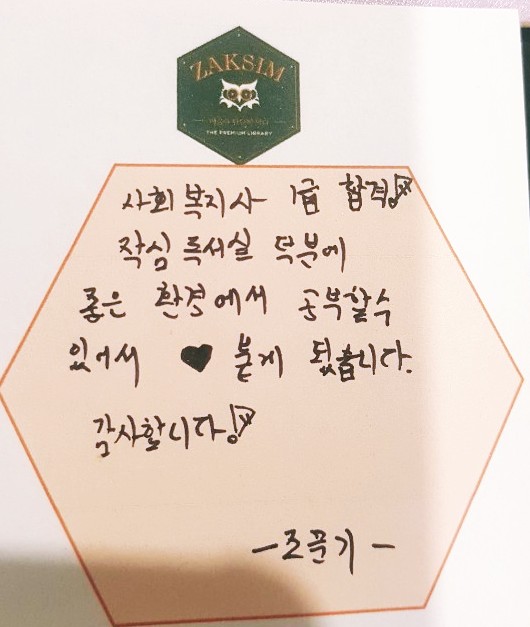 ZAKSIM
THE PREMIUM LIBRARY
사회복지사 1급 합격!
작심 독서실 덕분에
좋은 환경에서 공부할수
있어서 ♥ 붙게 됬습니다.
감사합니다!
-조문기-